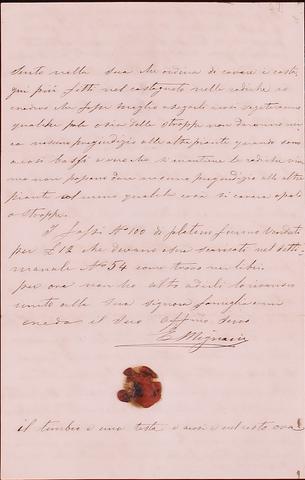 Sento nella sua che ordina di cavare e costa
qui più fitti nel castagneto nelle radiche io
credevo che fosse meglio segarle così vegetavano
qualche palo o sia delle stroppe non davano mi
ca nessun pregiudizio alle altre piante quando sono
a così bassi e vero che si mantiene le radiche viv
ma non possono dare nessuno pregiudizio alle altre
piante al meno qualche cosa si cavava o pali
o stroppe.
I Fassi N° 100 di platino furono venduti
per £ 12 che devano essere scaricati nel setti-
manale N° 54 come trovo nei libri
per ora non ho altro a dirli lo riverisco
unito alla sua signora famiglia e mi
creda il suo affmo servo
E. Mignani
il timbro è una testa e così è nel resto ora